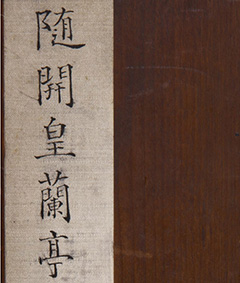 随開皇蘭亭